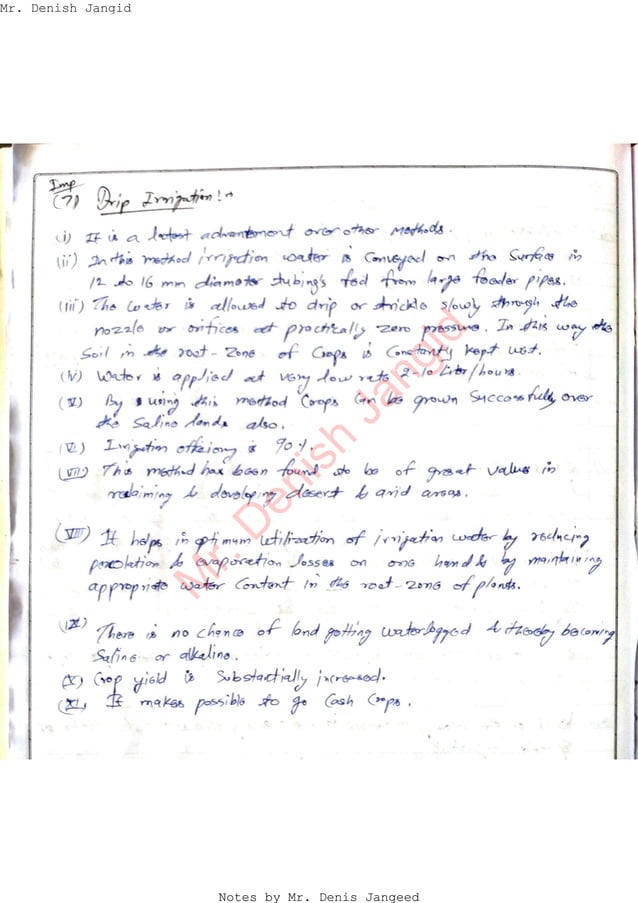 Mr. Denish Jangid
Imp
(7) Drip Irrigation:-
(i) It is a latest advantement over other Methods.
(ii) In this method irrigation water is Conveyed on the Surface in
12 to 16 mm diameter tubing's fed from large feeder pipes.
(iii) The water is allowed to drip or trickle slowly through the
nozzle or orifices at practically zero pressure. In this way the
Soil in the root-zone of Crops is Constantly kept wet.
(iv) Water is applied at very low rate 2-10 Liter/hours.
(v) By using this method Crops Can be grown Successfully over
the Saline lands also.
(VI) Irrigation efficiency is 90%.
(VII) This method has been found to be of great value in
reclaiming & developing desert & arid areas.
(VIII) It helps in optimum utilization of irrigation water by reducing
percolation & evaporation losses on one hand & by maintaining
appropriate water Content in the root-zone of plants.
(IX) There is no chance of land getting waterlogged & thereby becoming
Saline or alkaline.
(X) Crop yield is Substactially increased.
(XI) It makes possible to go Cash Crops.
Mr. Denish Jangid
Notes by Mr. Denis Jangeed